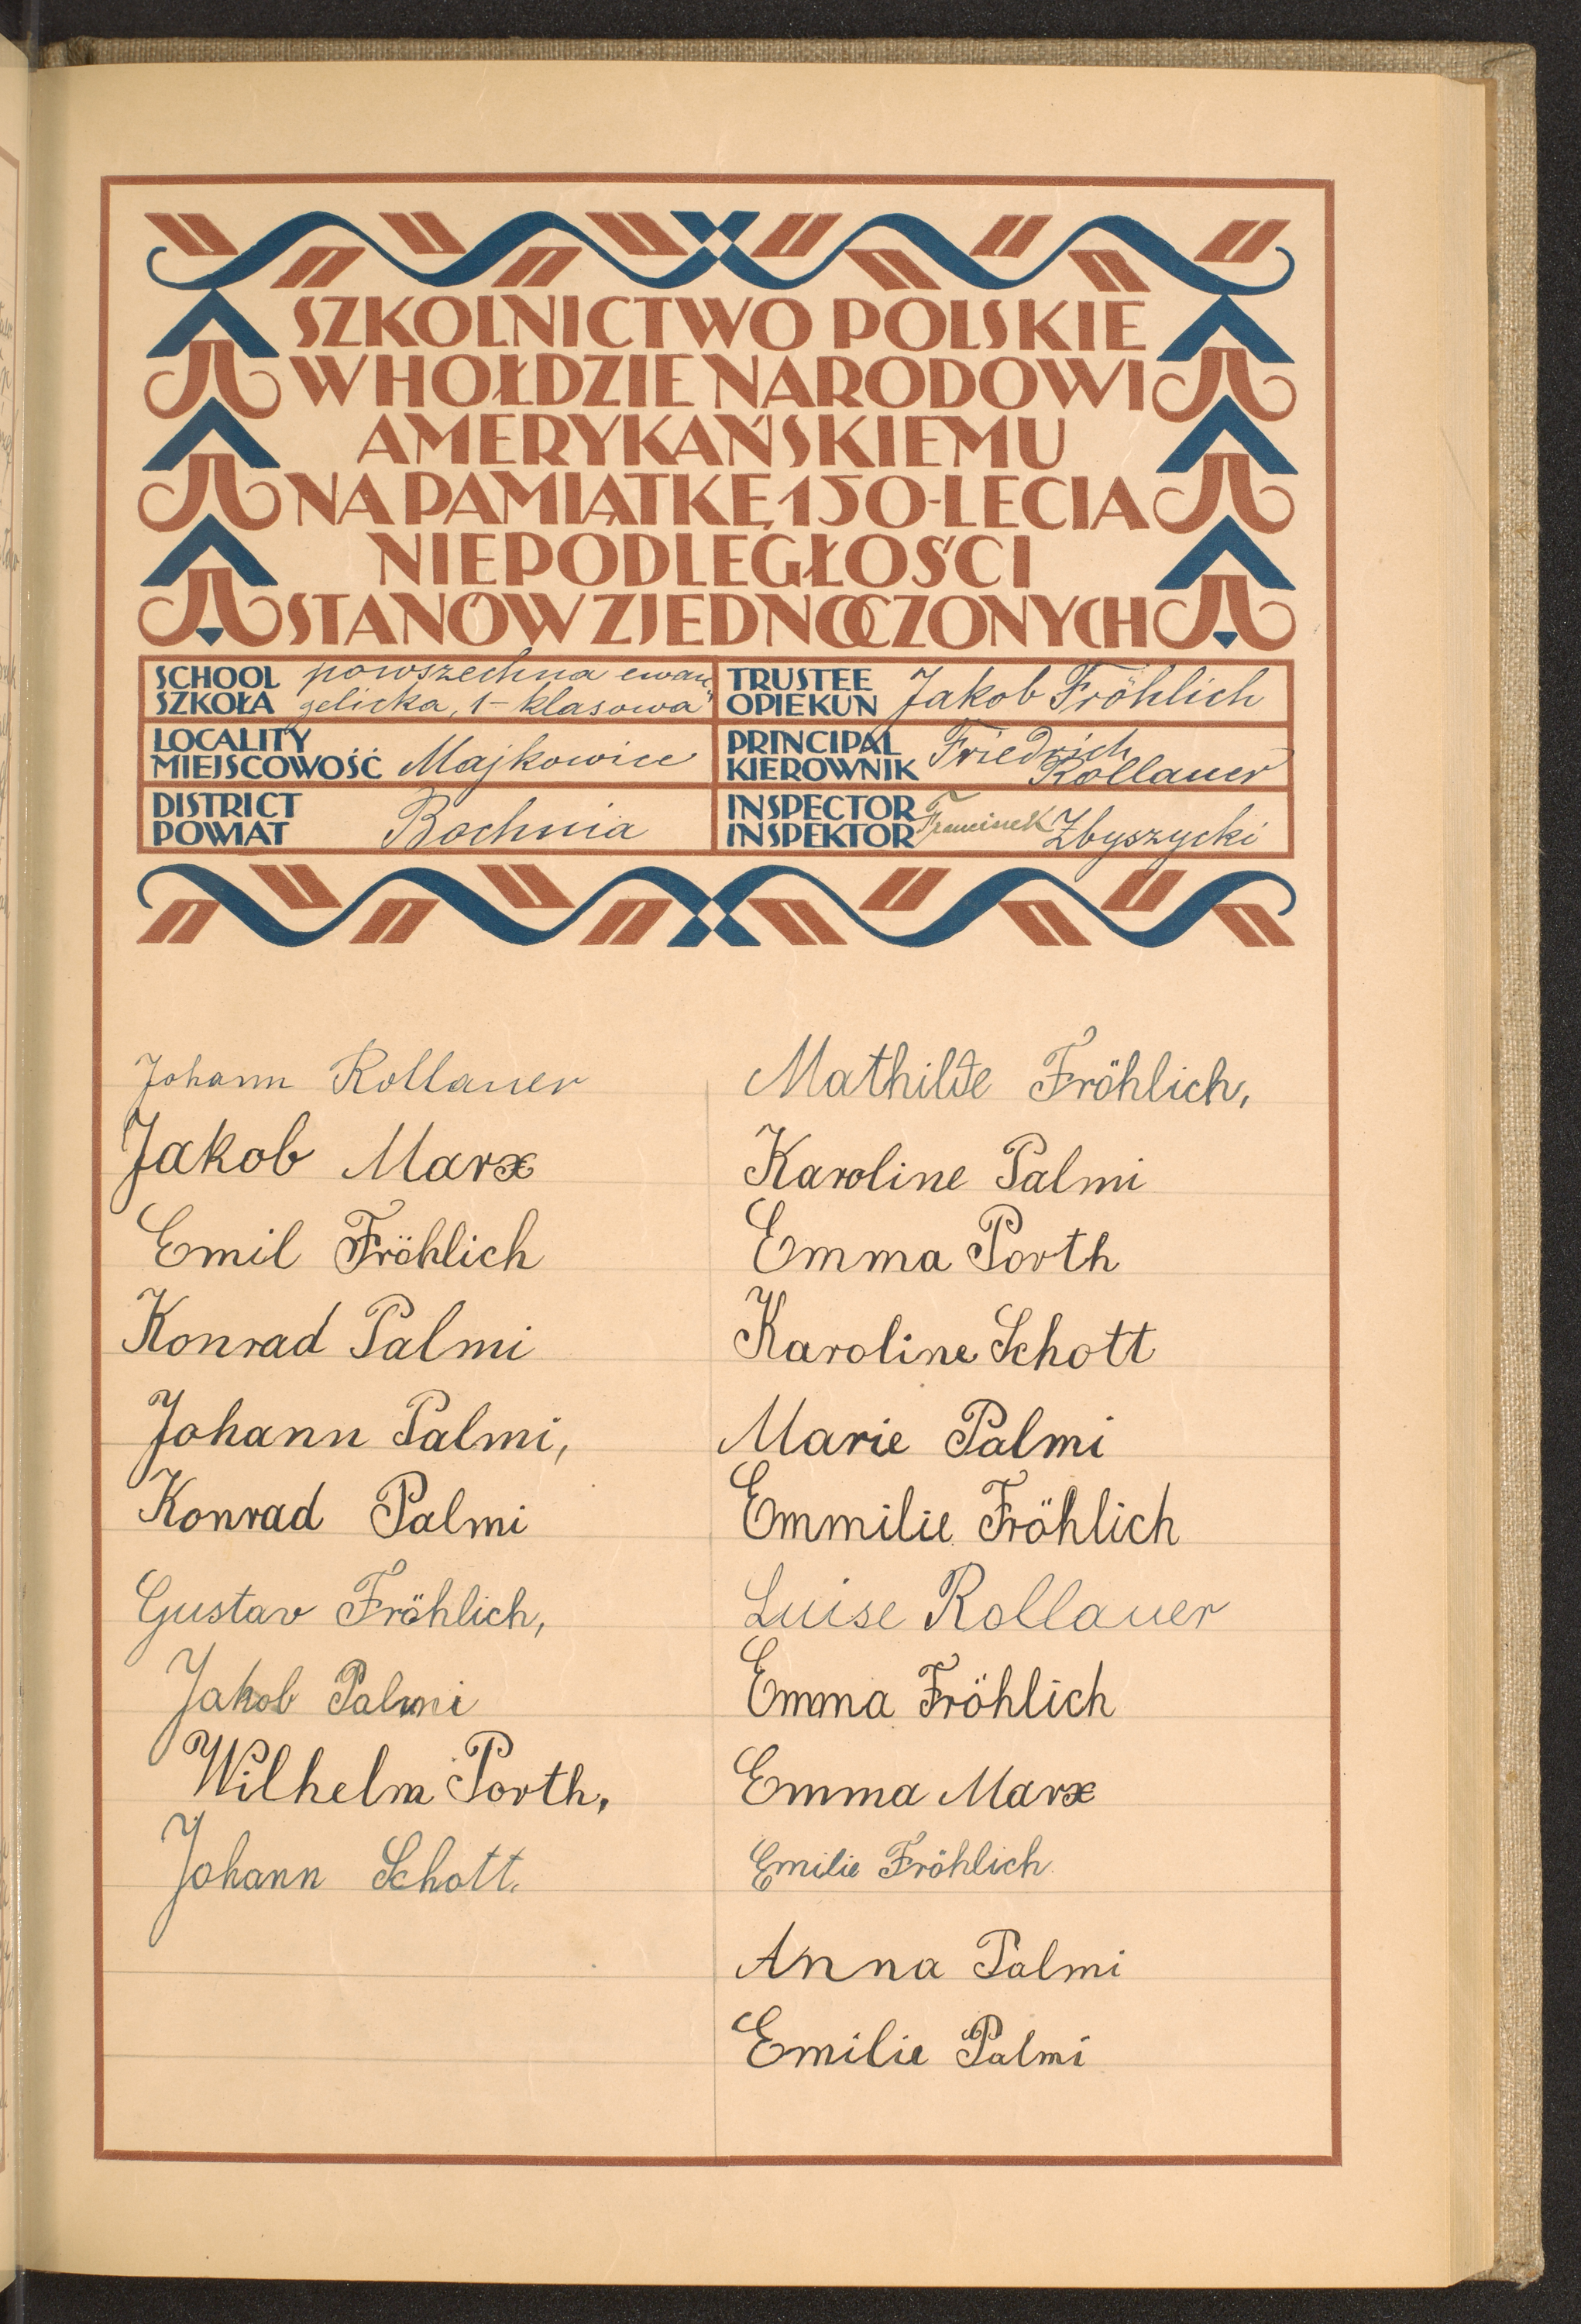 SZKOLNICTWO POLSKIE
W HOŁDZIE NARODOWI
AMERYKAŃSKIEMU
NA PAMIĄTKĘ 150-LECIA
NIEPODLEGŁOŚCI
STANÓW ZJEDNOCZONYCH
SCHOOL
SZKOŁA
powszechna ewan
gelicka, 1-klasowa
TRUSTEE
OPIEKUN
Jakob Fröhlich
LOCALITY
MIEJSCOWOŚĆ
Majkowice
PRINCIPAL
KIEROWNIK
Friedrich
Rollauer
DISTRICT
POWIAT
Bochnia
INSPECTOR
INSPEKTOR
Zbyszycki
Johann Rollauer
Jakob Marx
Emil Fröhlich
Konrad Palmi
Johann Palmi,
Konrad Palmi
Gustav Fröhlich,
Jakob Palmi
Wilhelm Porth,
Johann Schott.
Mathilde Fröhlich,
Karoline Palmi
Emma Porth
Karoline Schott
Marie Palmi
Emmilie Fröhlich
Luise Rollauer
Emma Fröhlich
Emma Marx
Emilie Fröhlich
Anna Palmi
Emilie Palmi